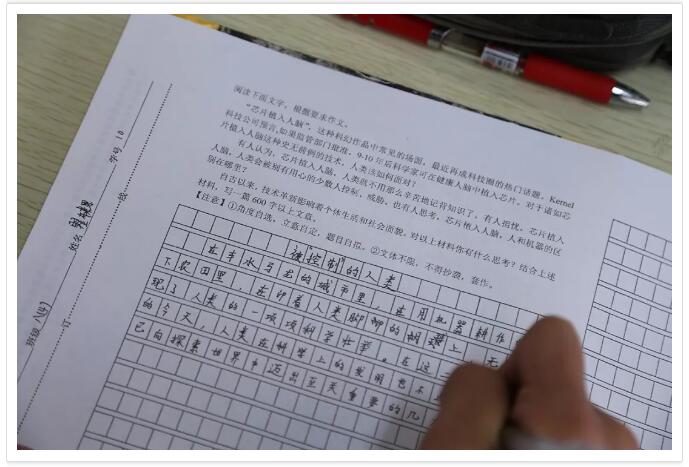 阅读下面文字，根据要求作文。
“芯片植入人脑”，这种科幻作品中常见的场面，最近再成科技圈的热门话题。Kernel
科技公司预言，如果监管部门批准，9-10年后科学家可在健康人脑中植入芯片。对于诸如芯
片植入人脑这种史无前例的技术，人类该如何面对？
有人认为，芯片植入人脑，人类就不用那么辛苦地记背知识了。有人担忧，芯片植入
人脑，人类会被别有用心的少数人控制、威胁。也有人思考，芯片植入人脑，人和机器的区
别在哪里？
自古以来，技术革新影响着个体生活和社会面貌。对以上材料你有什么思考？结合上述
材料，写一篇600字以上文章。
【注意】①角度自选，立意自定，题目自拟。②文体不限，不得抄袭，套作。
班级 八(4)
姓名
学号 10
订
线
被“控制”的人类
在车水马龙的城市里，在用机器耕作
下农田里，在印着人类脚脚的胡
现了人类的一项项科学壮举。在这
的今天，人类在科学上的发明也不
已向探索世界中迈出至关重要的几